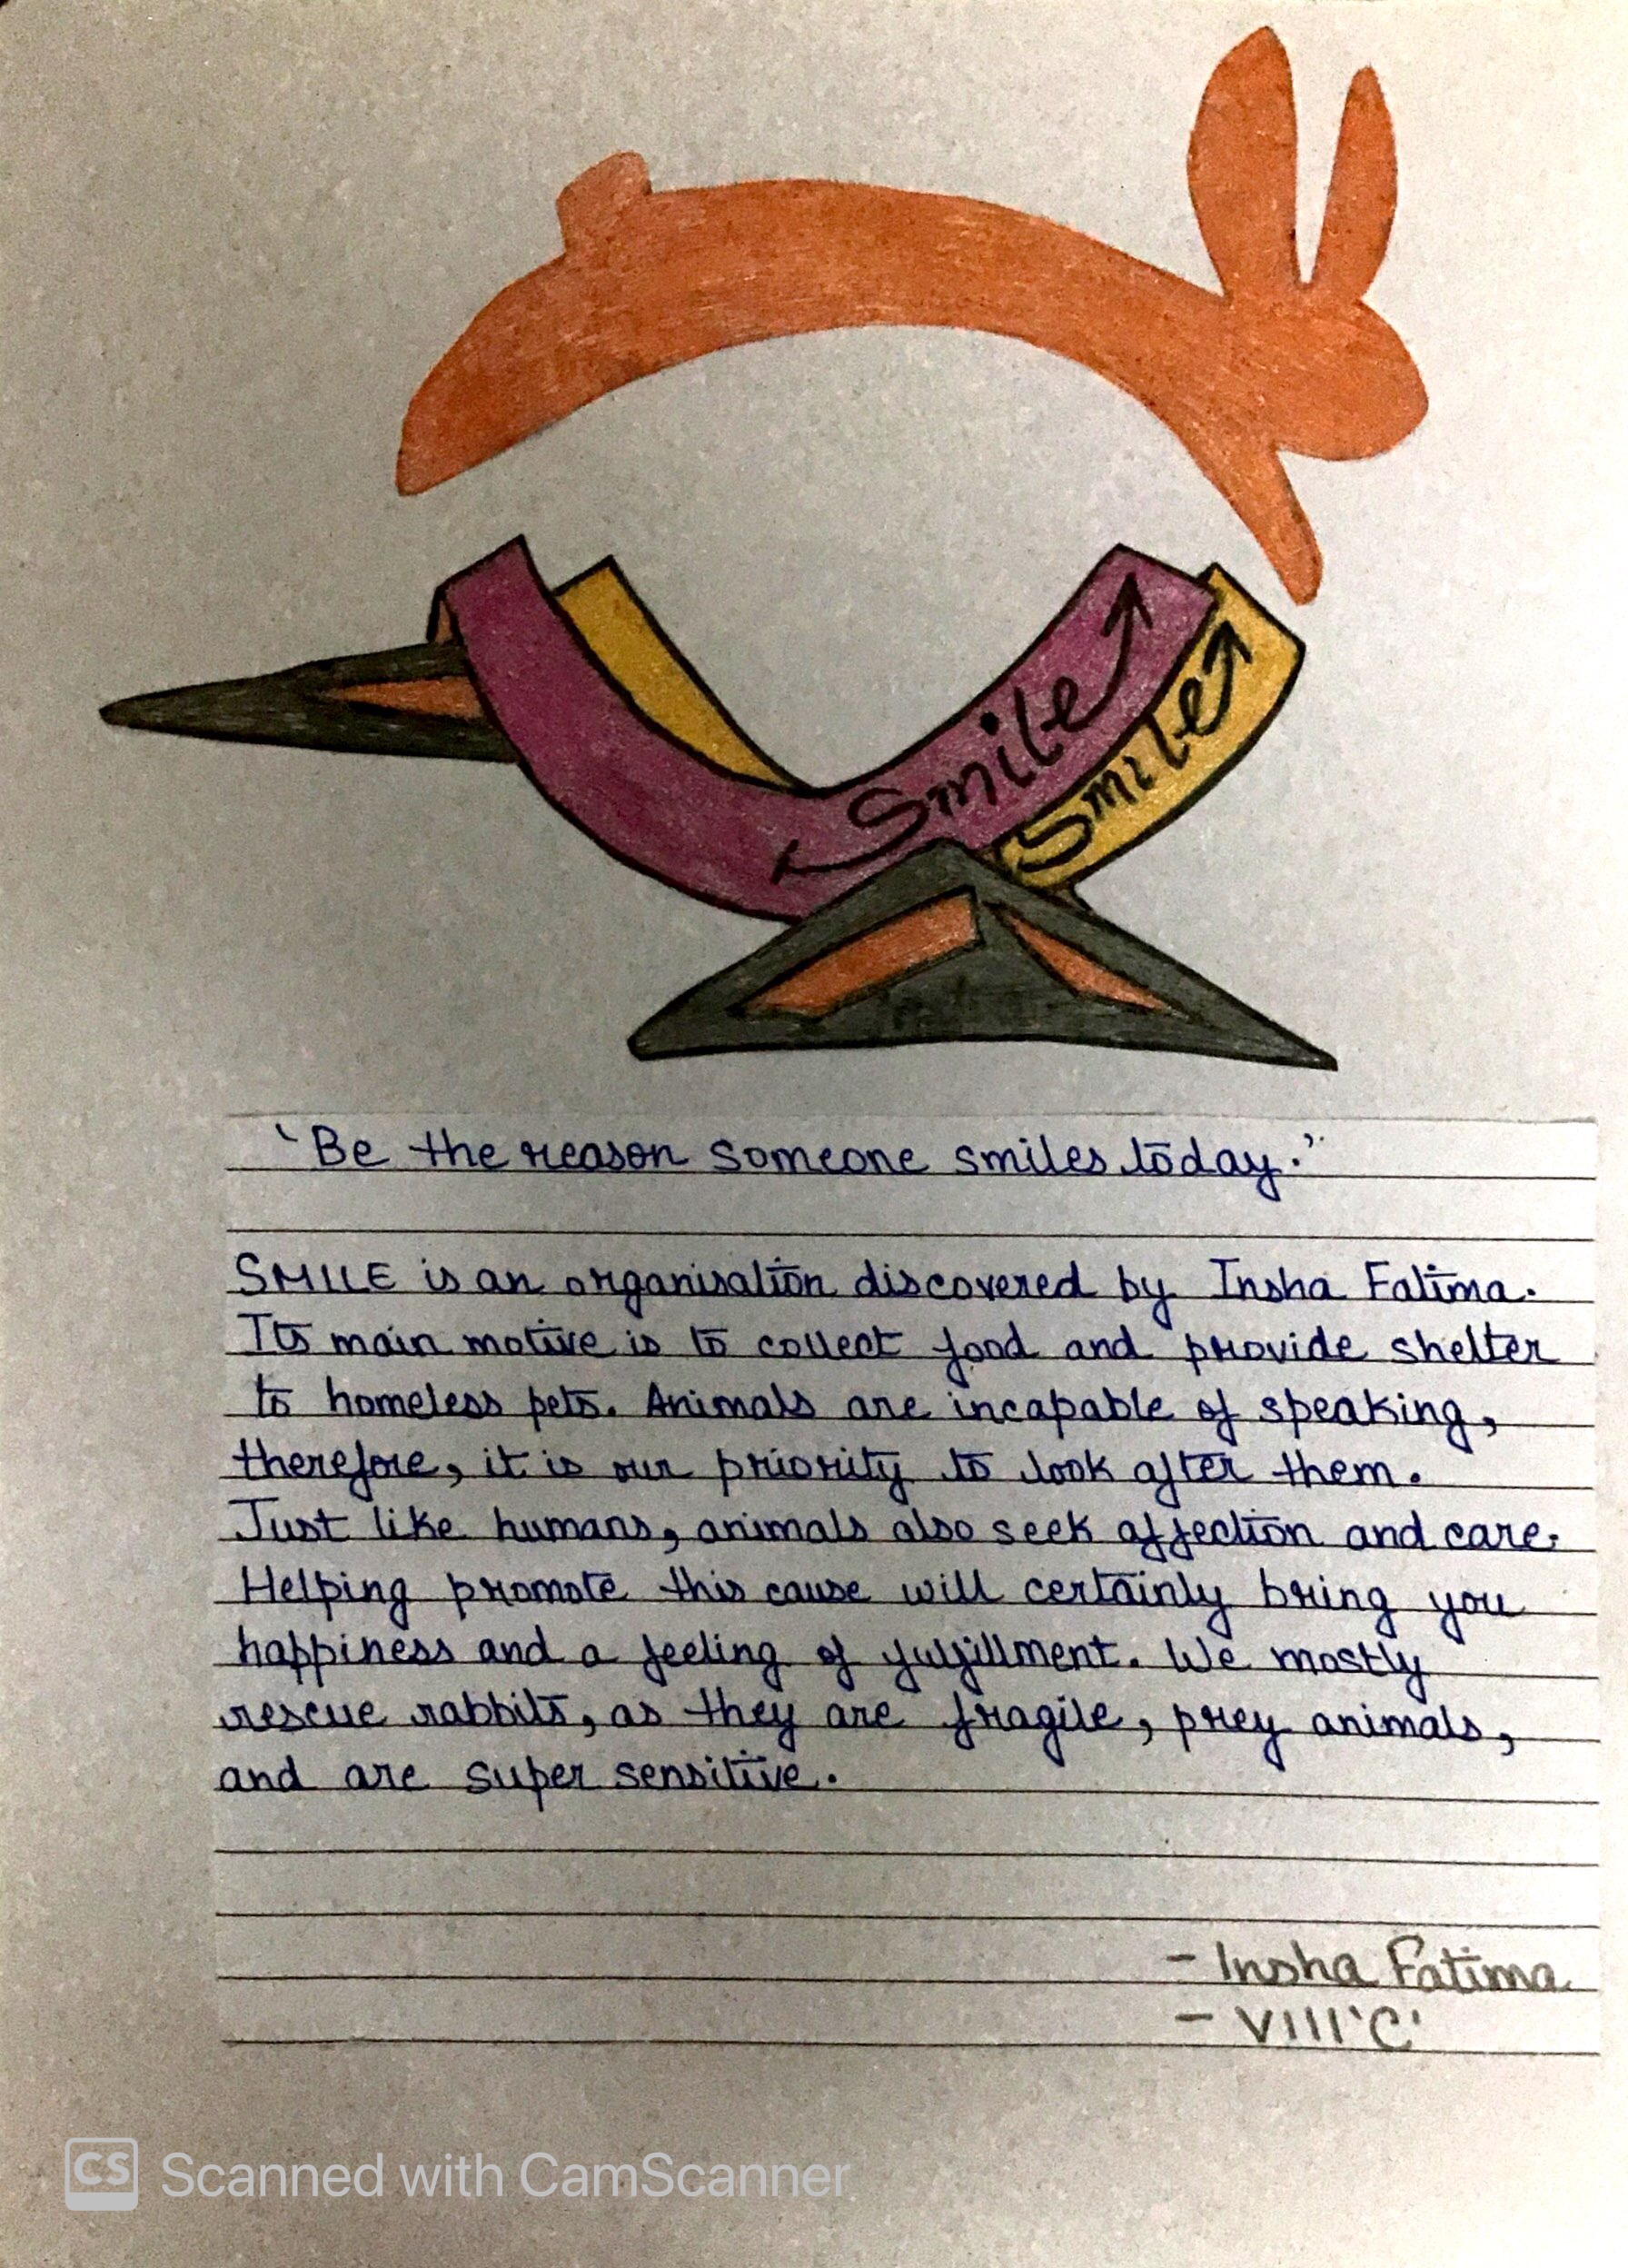 Smile
Smile
'Be the reason someone smiles today.'
SMILE is an organisation discovered by Insha Fatima.
Its main motive is to collect food and provide shelter
to homeless pets. Animals are incapable of speaking,
therefore, it is our priority to look after them.
Just like humans, animals also seek affection and care.
Helping promote this cause will certainly bring you
happiness and a feeling of fulfillment. We mostly
rescue rabbits, as they are fragile, prey animals,
and are super sensitive.
- Insha Fatima
- VIII 'C'
CS Scanned with CamScanner